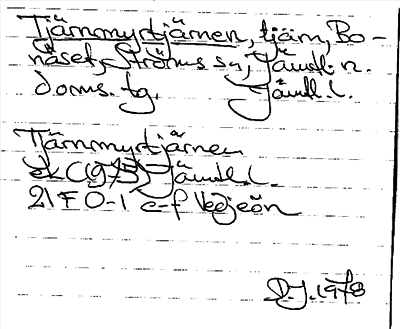 Tjärnmyrtjärnen, tjärn, Bo-
näset, Ströms sn, Jämtl. n.
doms. tg. Jämtl. l.
Tjärnmyrtjärnen
ek (973) Jämtl. l.
21F 0-1 e-f
D.J. 1978